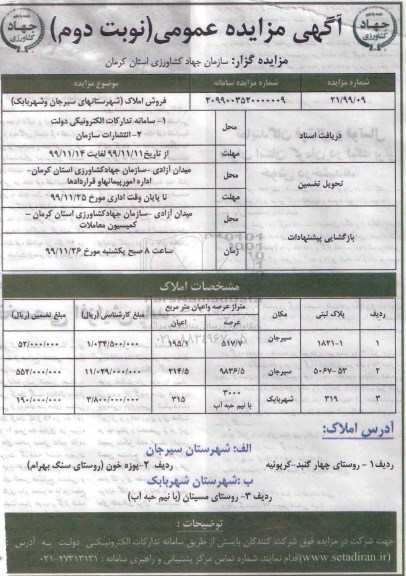 جهاد کشاورزی
آگهی مزایده عمومی(نوبت دوم)
جهاد کشاورزی
مزایده گزار: سازمان جهاد کشاورزی استان کرمان
شماره مزایده شماره مزایده سامانه موضوع مزایده
۲۱/۹۹/۰۹ ۲۰۹۹۰۰۳۵۲۰۰۰۰۰۰۹ فروش املاک (شهرستانهای سیرجان وشهربابک)
دریافت اسناد محل ۱- سامانه تدارکات الکترونیکی دولت
۲- انتشارات سازمان
مهلت از تاریخ ۹۹/۱۱/۱۱ لغایت ۹۹/۱۱/۱۴
تحویل تضمین محل میدان آزادی -سازمان جهادکشاورزی استان کرمان-
اداره امورپیمانهاو قراردادها
مهلت تا پایان وقت اداری مورخ ۹۹/۱۱/۲۵
بازگشایی پیشنهادات محل میدان آزادی -سازمان جهادکشاورزی استان کرمان -
کمیسیون معاملات
زمان ساعت ۸ صبح یکشنبه مورخ ۹۹/۱۱/۲۶
مشخصات املاک
ردیف پلاک ثبتی مکان متراژ عرصه واعیان متر مربع مبلغ کارشناسی (ریال) مبلغ تضمین (ریال)
عرصه اعیان
۱ ۱۸۲۱-۱ سیرجان ۵۱۷/۷ ۱۹۵/۱ ۱/۰۳۴/۵۰۰/۰۰۰ ۵۲/۰۰۰/۰۰۰
۲ ۵۰۶۷-۵۲ سیرجان ۹۸۳۶/۵ ۲۱۴/۵ ۱۱/۰۳۹/۰۰۰/۰۰۰ ۵۵۲/۰۰۰/۰۰۰
۳ ۳۱۹ شهربابک ۳۰۰۰
با نیم حبه آب ۳۱۵ ۳/۸۰۰/۰۰۰/۰۰۰ ۱۹۰/۰۰۰/۰۰۰
آدرس املاک:
الف: شهرستان سیرجان
ردیف۱ - روستای چهار گنبد-کرپونیه ردیف ۲-پوزه خون (روستای سنگ بهرام)
ب :شهرستان شهربابک
ردیف ۳- روستای مسینان (با نیم حبه آب)
توضیحات :
جهت شرکت در مزایده فوق شرکت کنندگان بایستی از طریق سامانه تدارکات الکترونیکی دولت به آدرس :
(www.setadiran.ir)اقدام نمایند. شماره تماس مرکز پشتیبانی و راهبری سامانه : ۲۷۳۱۳۱۳۱-۰۲۱